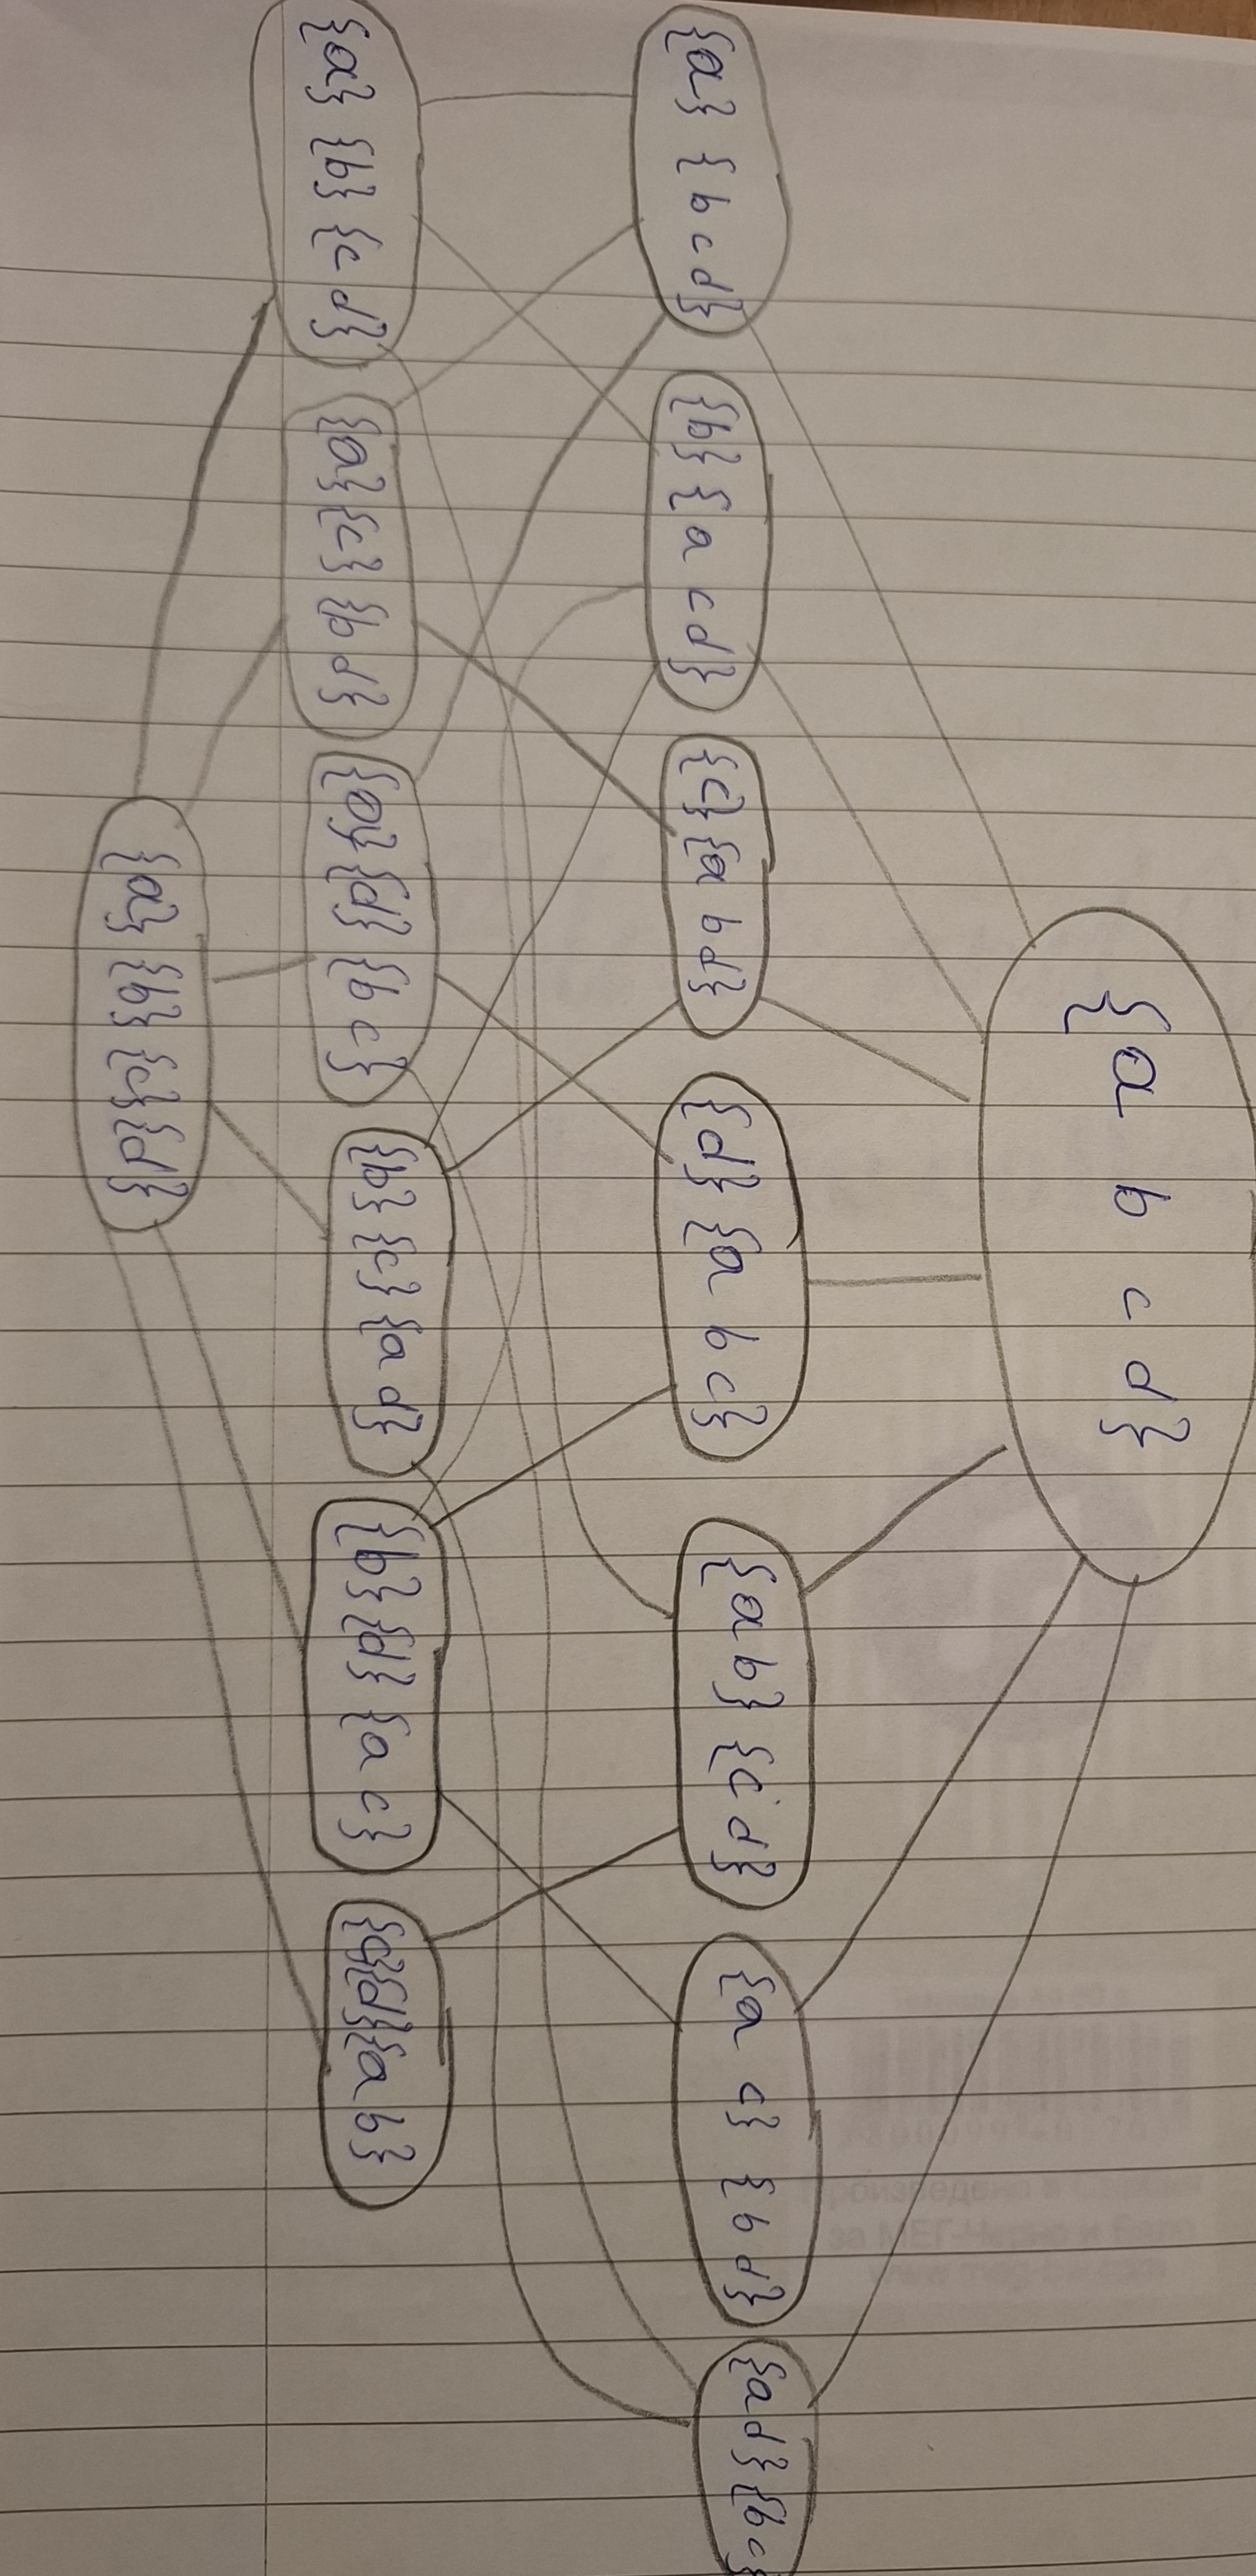 {a b c d}
{a} {b c d}
{b} {a c d}
{c} {a b d}
{d} {a b c}
{a b} {c d}
{a c} {b d}
{a d} {b c}
{a} {b} {c d}
{a} {c} {b d}
{a} {d} {b c}
{b} {c} {a d}
{b} {d} {a c}
{c} {d} {a b}
{a} {b} {c} {d}
Произведено в
за МЕГ-